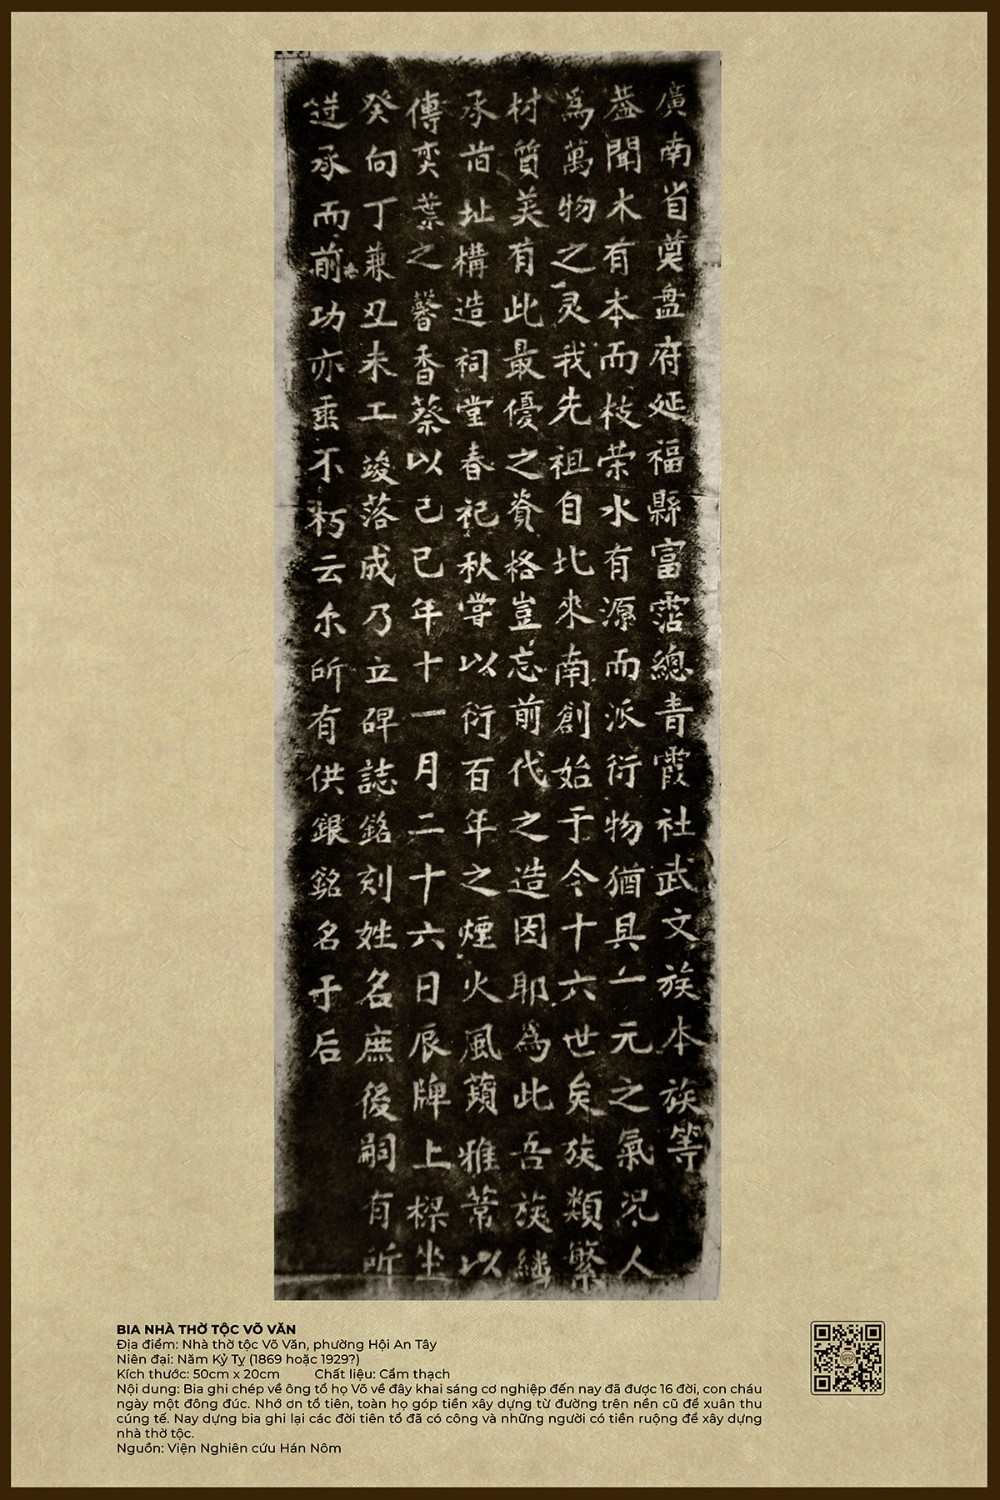 廣南省奠盘府延福縣富霑總青霞社武文族本族等
蓋聞木有本而枝荣水有源而派衍物猶具一元之氣况人
爲萬物之灵我先祖自北來南創始于今十六世矣族類繁
材質美有此最優之資格豈忘前代之造因耶爲此吾族繕
承旧址構造祠堂春祀秋嘗以衍百年之煙火風蘋雅蔕以
傳奕葉之馨香蔡以己巳年十一月二十六日辰牌上樑坐
癸向丁兼丑未工竣落成乃立碑誌銘刻姓名庶後嗣有所
承而前功亦垂不朽云尒所有供銀銘名于后
BIA NHÀ THỜ TỘC VÕ VĂN
Địa điểm: Nhà thờ tộc Võ Văn, phường Hội An Tây
Niên đại: Năm Kỷ Tỵ (1869 hoặc 1929?)
Kích thước: 50cm x 20cm Chất liệu: Cẩm thạch
Nội dung: Bia ghi chép về ông tổ họ Võ về đây khai sáng cơ nghiệp đến nay đã được 16 đời, con cháu
ngày một đông đúc. Nhớ ơn tổ tiên, toàn họ góp tiền xây dựng từ đường trên nền cũ để xuân thu
cúng tế. Nay dựng bia ghi lại các đời tiên tổ đã có công và những người có tiền ruộng để xây dựng
nhà thờ tộc.
Nguồn: Viện Nghiên cứu Hán Nôm